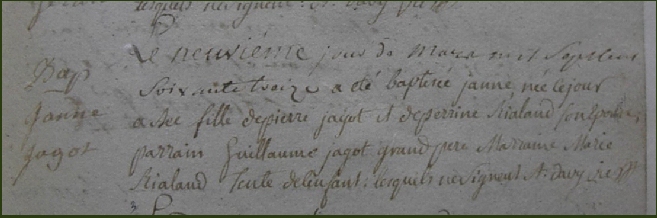 lesquels ne signent. A. Davy
Le neuviéme jour de mars mil sept cens
Bap soixante treize a eté baptisée janne, née le jour
janne fille de pierre jagot et de perrine Rialand
jagot parrain Guillaume jagot grand pere Marraine Marie
Rialand tente de l'enfant: lesquels ne signent A. Davy